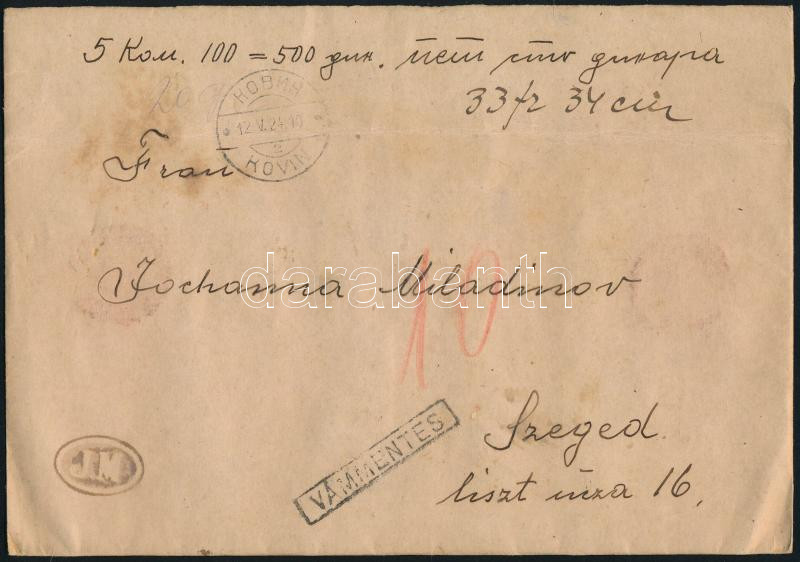 5 Ком. 100 = 500 дин. пет сто динара
33 fr 34 cm
20
КОВИН
12.V.24.10
2
KOVIN
Frau
Jochanna Miladinov
darabanth
10
Szeged.
VÁMMENTES
liszt uza 16.